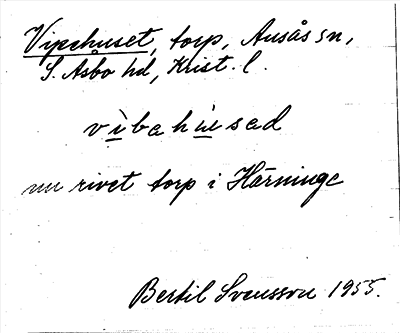 Vipehuset, torp, Ausås sn,
S. Åsbo hd, Krist. l.
vìbahùsad
nu rivet torp i Härninge
Bertil Svensson 1955.